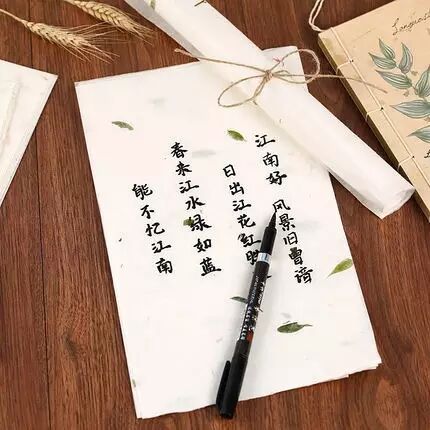 江南好 风景旧曾谙
日出江花红胜
春来江水绿如蓝
能不忆江南